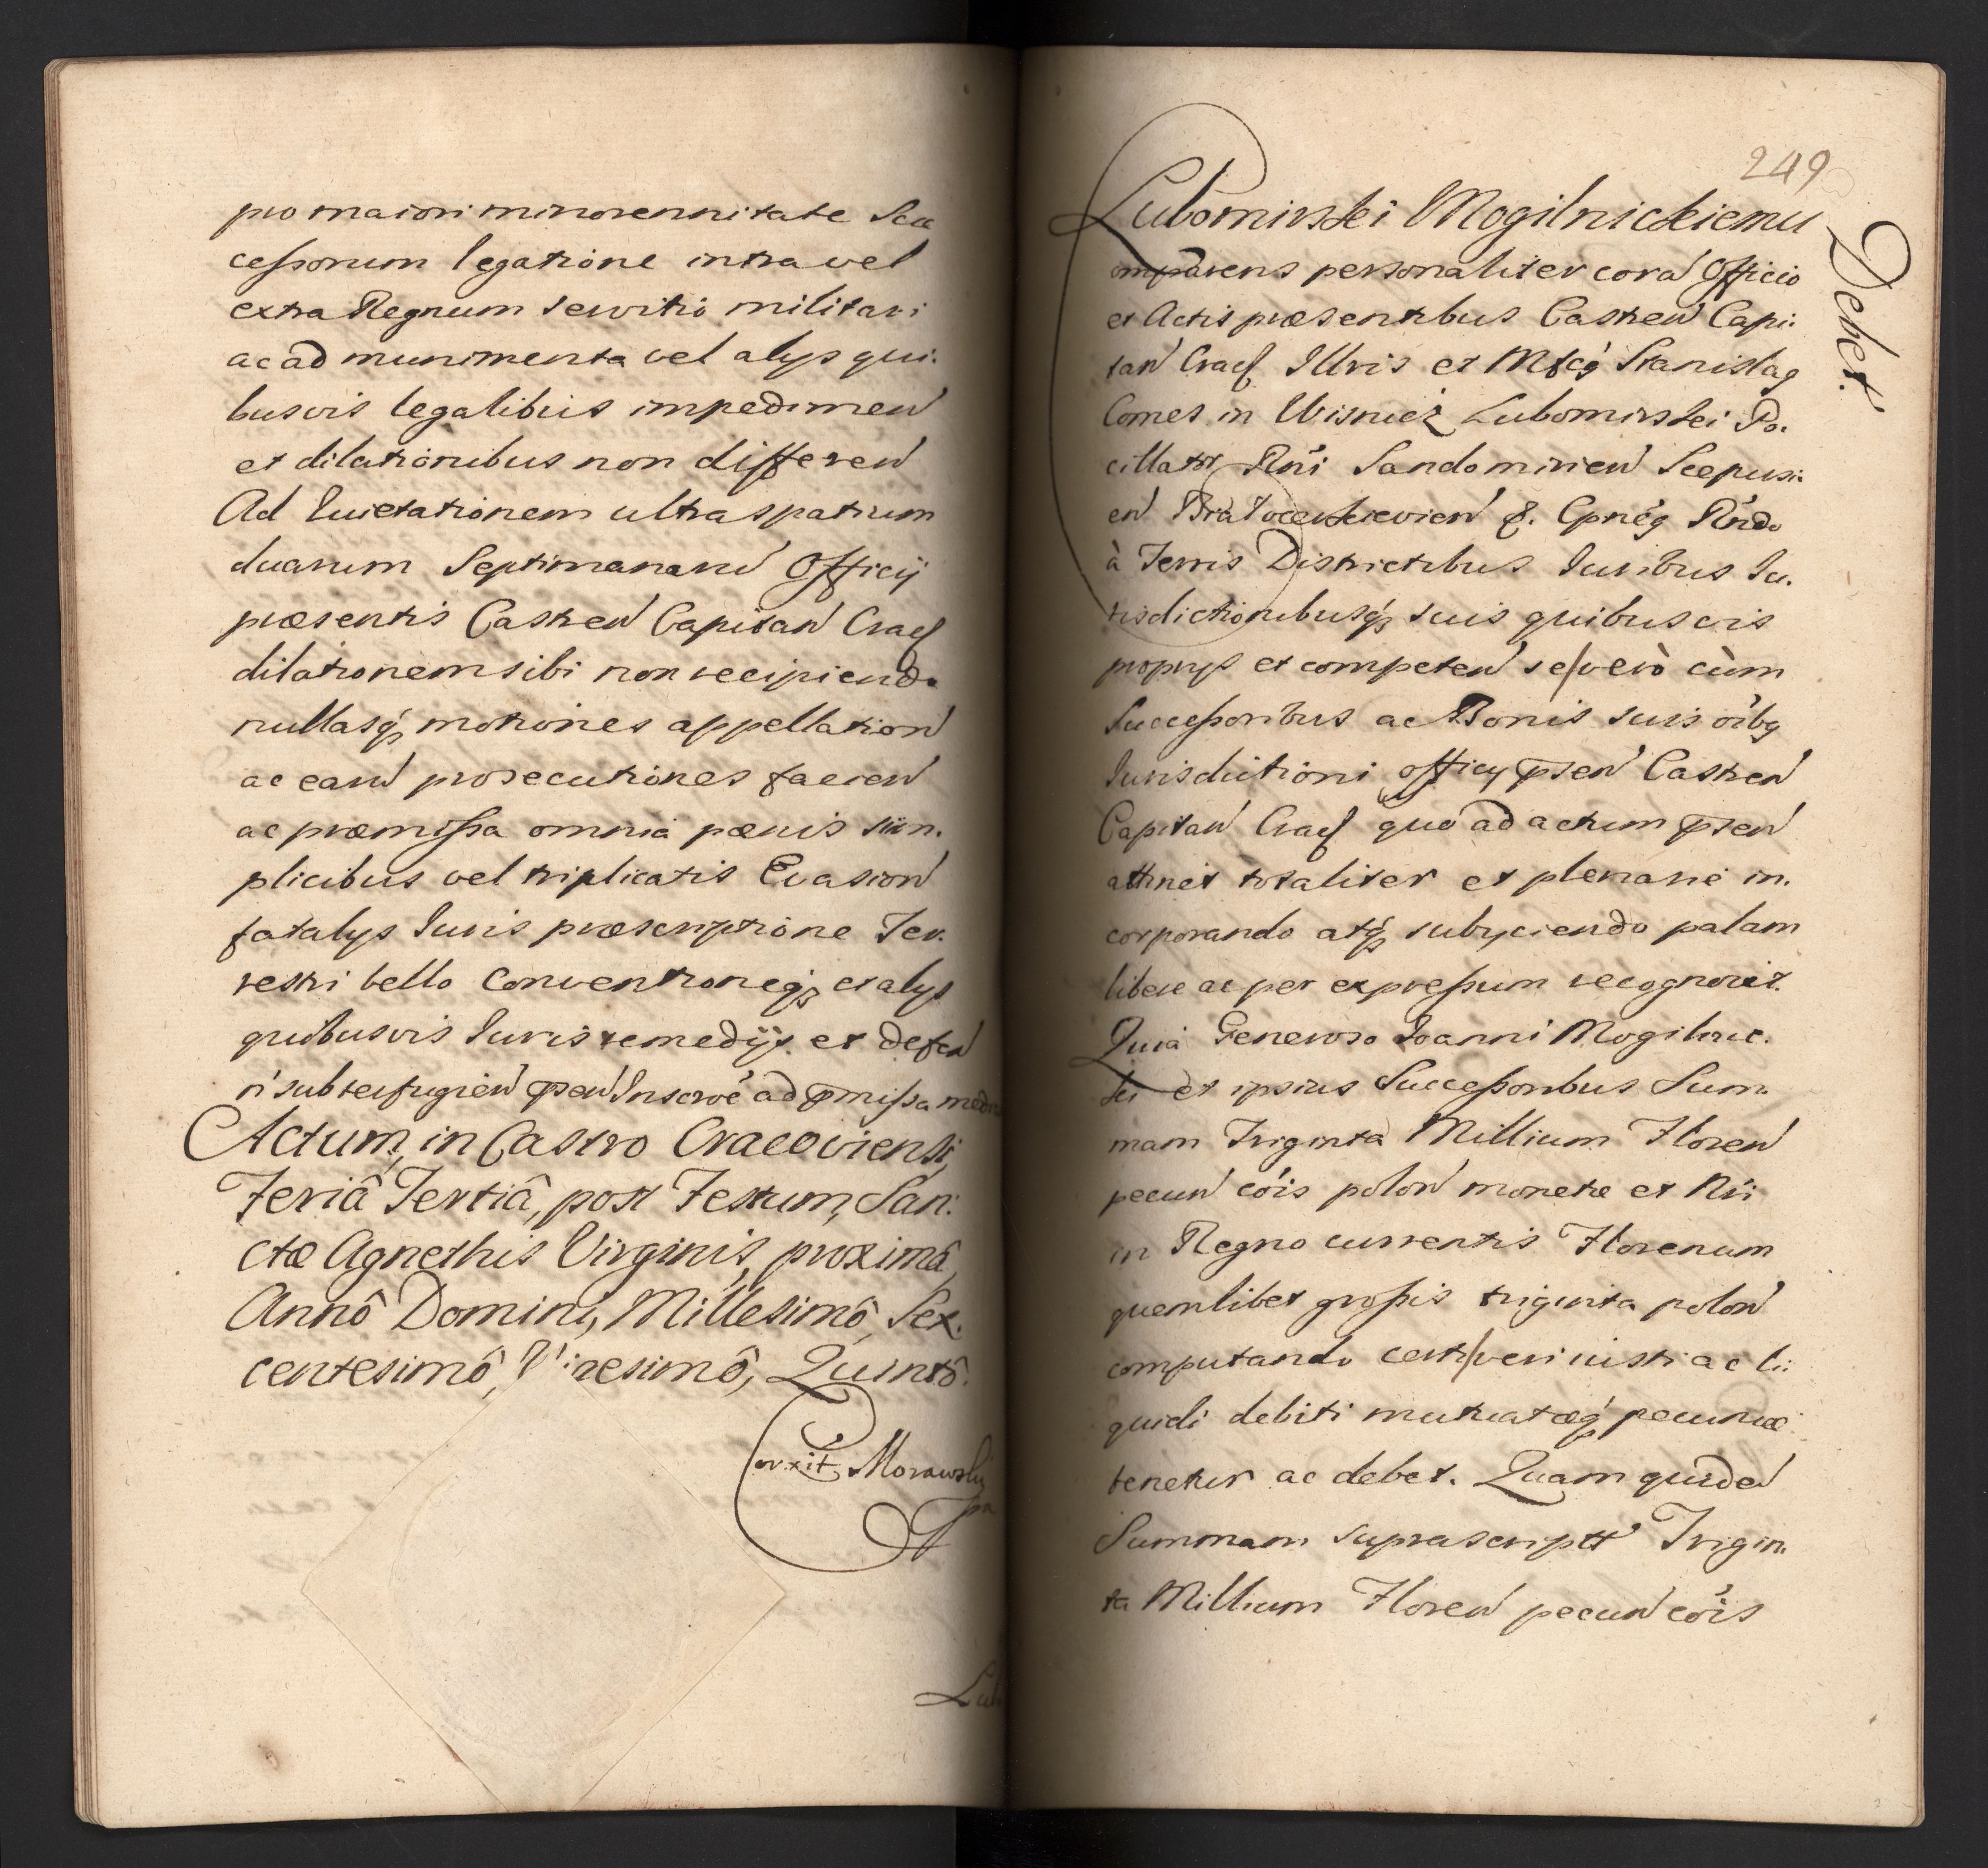 pro maiori minorennitate Suc
cessorum legatione intra vel
extra Regnum servitio militari
ac ad munimenta vel alys qui.
busvis legalibus impedimen
et dilationibus non differen
Ad Quietationem ultra spatium
duarum Septimanaru Officij
præsentis Castren Capitan Crac
dilationem sibi non recipiendo
nullasq motiones appellation
ac earu prosecutiones facien
ac præmissa omnia pænis sim.
plicibus vel triplicatis Evasion
fatalys Iuris præscriptione Ter.
restri bello Conventioneq et alys
quibusvis Iuris remedijs et defen
n subterfugien psen Inscroe ad pmissa medn
Actum, in Castro Cracoviensi,
Feriâ Tertiâ, post Festum, San:
ctæ Agnethis Virginis, proximâ
Annô Domini, Millesimô, Sex.
centesimô, Vigesimô, Quintô.
Corxit Morawsky
Lub
249
Lubomirski Mogilnickiemu
Debet.
omparens personaliter cora Officio
et Actis præsentibus Castren Capi:
tan Crac Illris et Mfcg Stanislag
Comes in Wisnicz Lubomirski Po.
cillator Rni Sandomirien Scepusi.
en Bialocerkievien &. Cpnég Rndo
à Terris Districtibus Iuribus Iu.
risdictionibusq suis quibusvis
proprys et competen se vero cùm
Successoribus ac Bonis suis oibg
Iurisdictioni officy psen Castren
Capitan Crac quo ad actum psen
attinet totaliter et plenarie in.
corporando atq subyciendo palam
libere ac per expressum recognovit.
Quia Generoso Ioanni Mogilnic.
ki et ipsius Successoribus Sum.
mam Triginta Millium Floren
pecun cóis polon monetæ et Nri
in Regno currentis Florenum
quemlibet grossis triginta polon
computando certi veri iusti ac li:
quidi debiti mutuatæq pecuniæ
tenetur ac debet. Quam quide
Summam suprascript Trigin.
ta Millium Floren pecun cóis